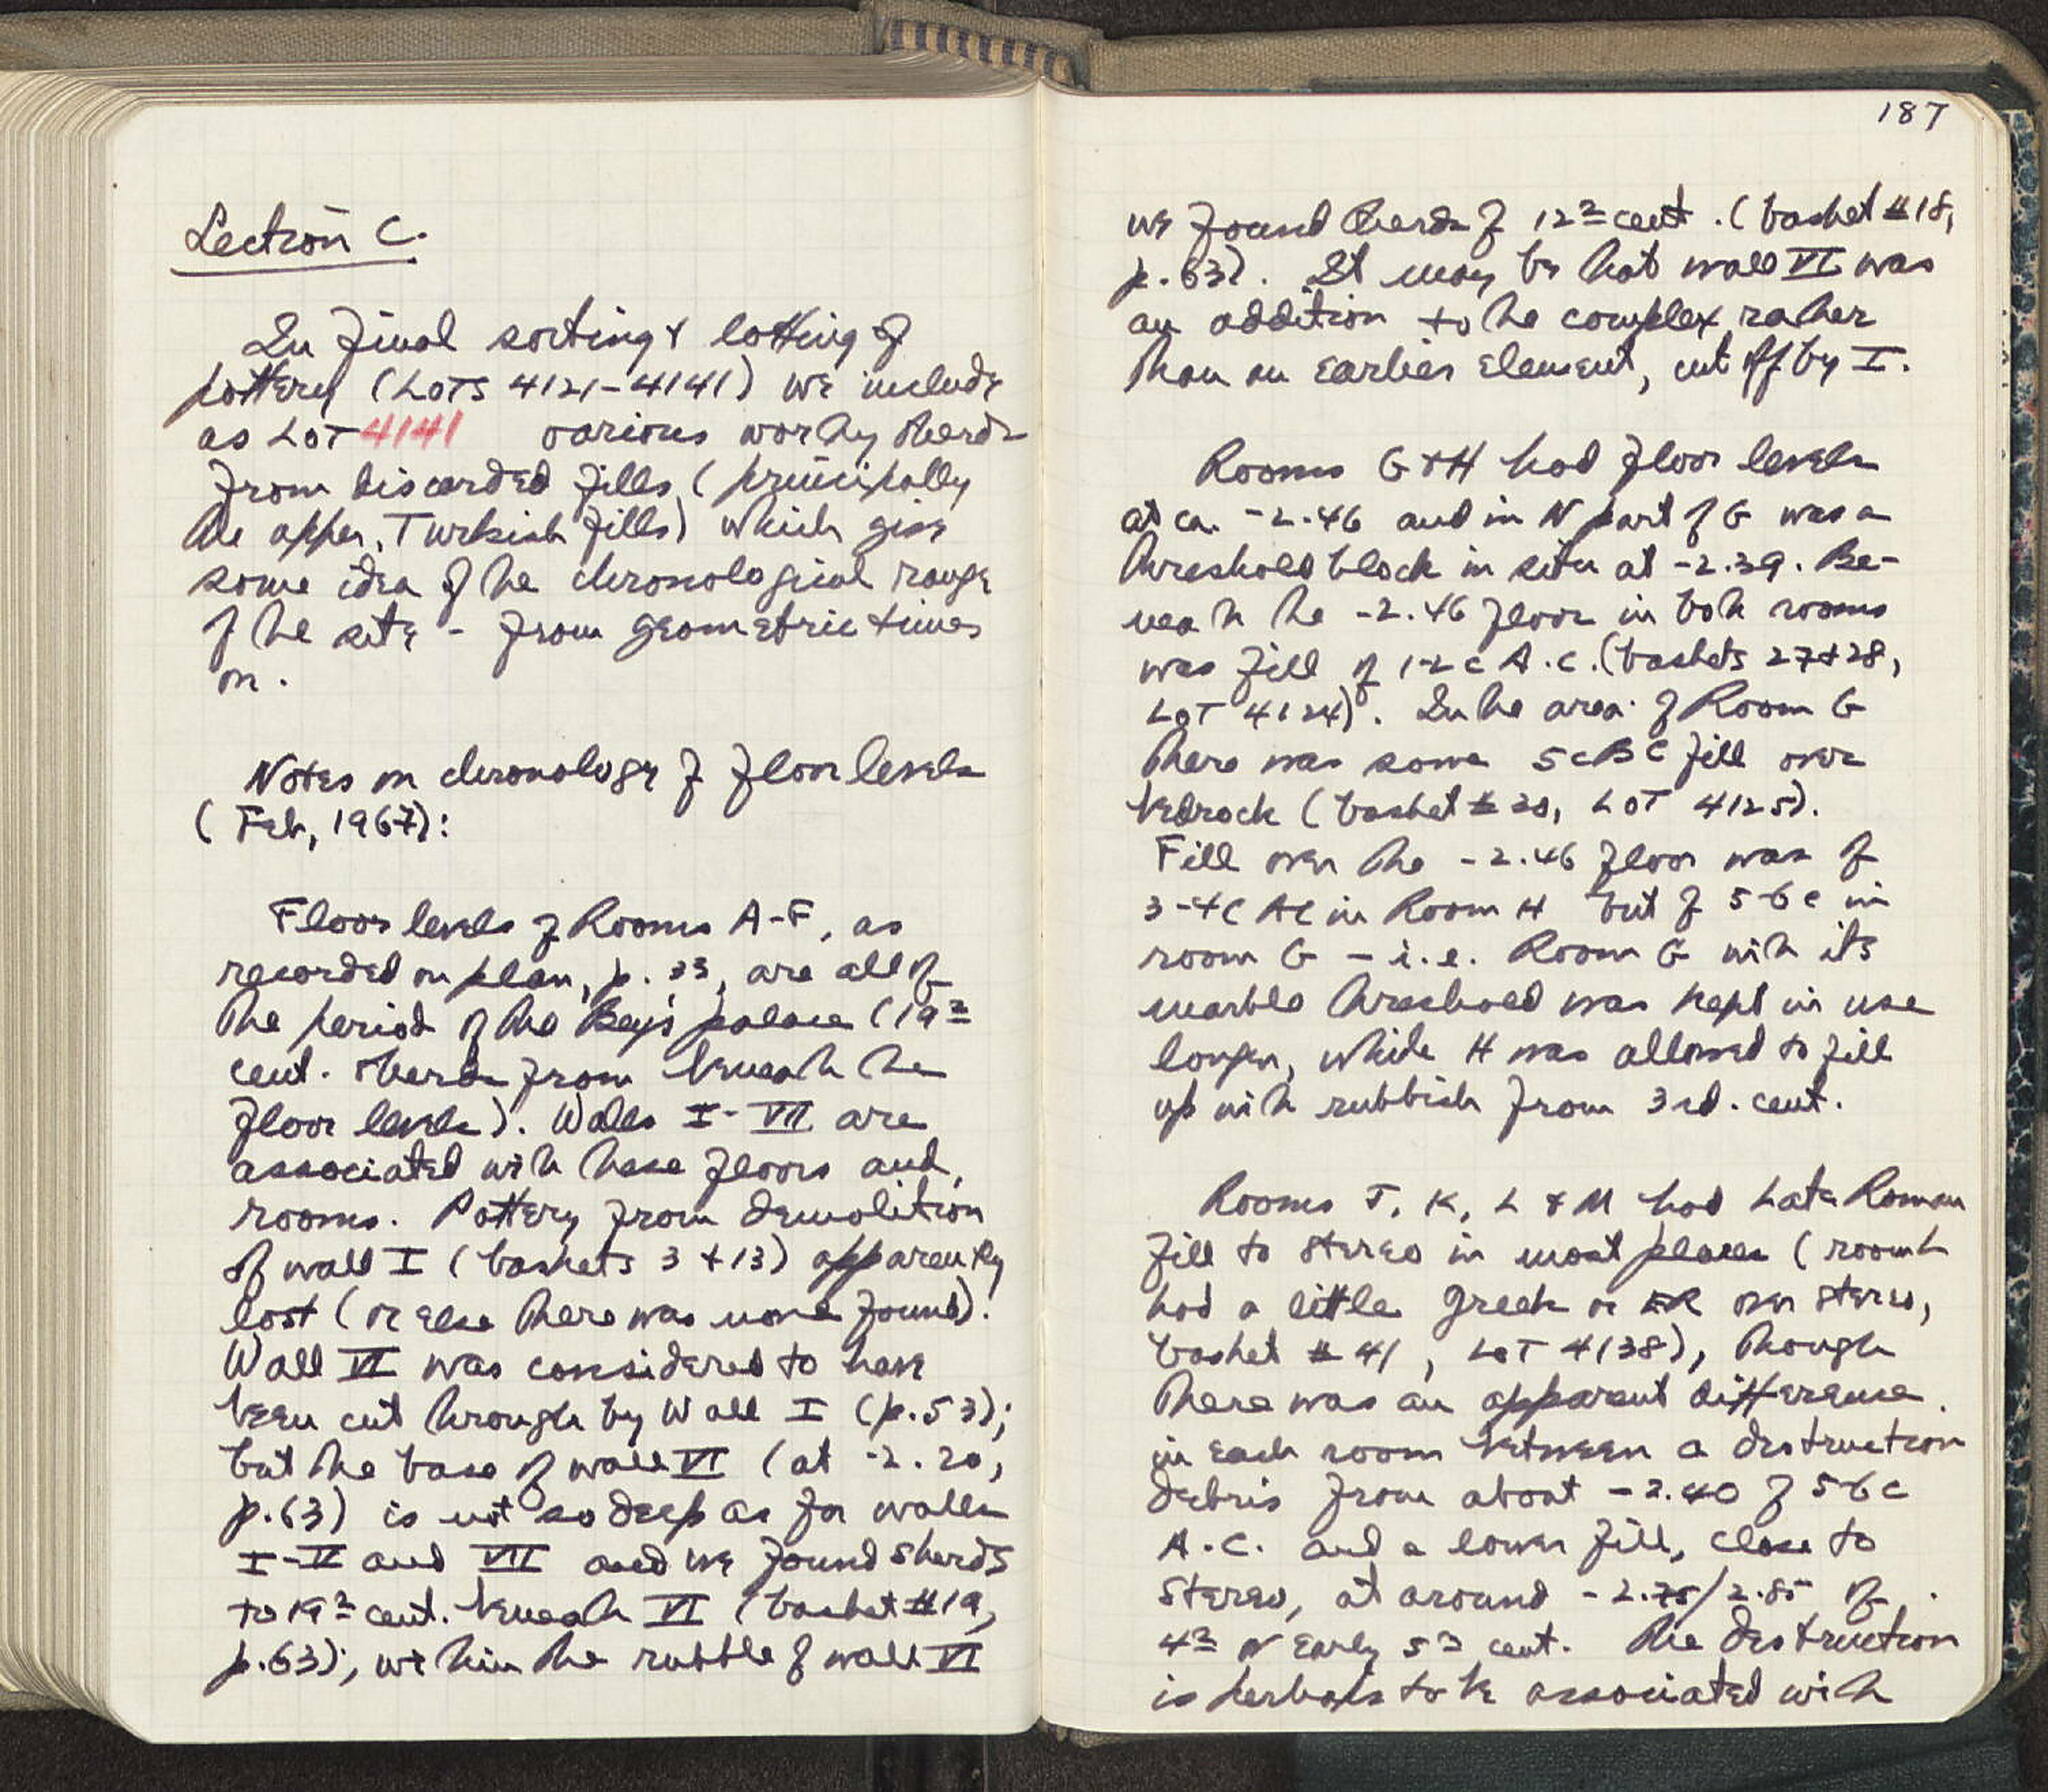 Section C.
In final sorting & lotting of
pottery (LOTS 4121-4141) we include
as LOT 4141 various worthy sherds
from discarded fills (principally
the upper, Turkish fills) which give
some idea of the chronological range
of the site - from geometric times
on.
Notes on chronology of floor levels
(Feb, 1967):
Floor levels of Rooms A-F, as
recorded on plan, p. 33, are all of
the period of the Bey's palace (19th
cent. sherds from beneath the
floor levels). Walls I-VII are
associated with these floors and
rooms. Pottery from demolition
of wall I (baskets 3 + 13) apparently
lost (or else there was none found).
Wall VI was considered to have
been cut through by Wall I (p. 53);
but the base of wall VI (at -2.20,
p. 63) is not so deep as for walls
I-V and VII and we found sherds
to 19th cent. beneath VI (basket #19,
p. 63); within the rubble of wall VI
187
we found sherds of 12th cent. (basket #18,
p. 63). It may be that wall VI was
an addition to the complex, rather
than an earlier element, cut off by I.
Rooms G & H had floor levels
at ca. -2.46 and in N part of G was a
threshold block in situ at -2.39. Be-
neath the -2.46 floor in both rooms
was fill of 1-2 c A.C. (baskets 27 & 28,
LOT 4124). In the area of Room G
there was some 5 c BC fill over
bedrock (basket #30, LOT 4125).
Fill over the -2.46 floor was of
3-4 C AC in Room H but of 5-6 c in
room G - i.e. Room G with its
marble threshold was kept in use
longer, while H was allowed to fill
up with rubbish from 3rd. cent.
Rooms J, K, L & M had Late Roman
fill to stereo in most places (room L
had a little Greek or ER over stereo,
basket #41, LOT 4138), though
there was an apparent difference
in each room between a destruction
debris from about -2.40 of 5-6 c
A.C. and a lower fill, close to
stereo, at around -2.75/2.85 of
4th or early 5th cent. The destruction
is perhaps to be associated with